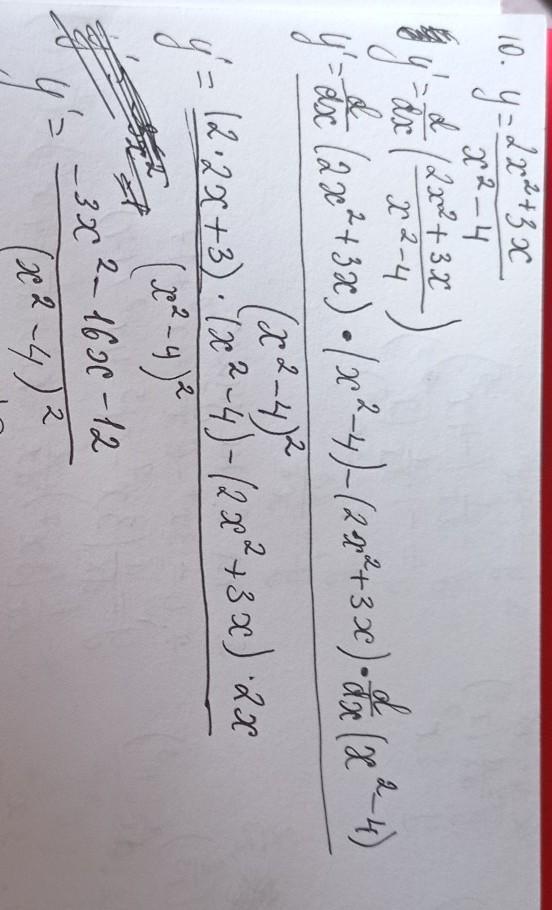 10. y = (2x²+3x)/(x²-4)
y' = d/dx ((2x²+3x)/(x²-4))
y' = (d/dx (2x²+3x) • (x²-4) - (2x²+3x) • d/dx (x²-4))/(x²-4)²
y' = ((2·2x+3)·(x²-4) - (2x²+3x)·2x)/(x²-4)²
y' = (-3x²-16x-12)/(x²-4)²